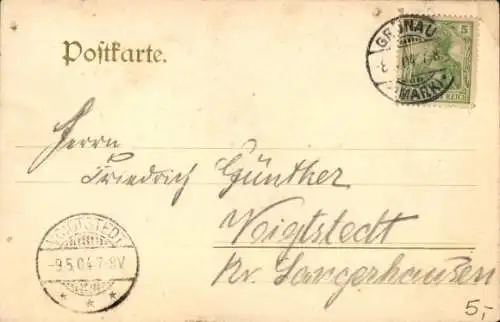 Postkarte.
GRÜNAU
(MARK)
5
REICH
Herrn
Friedrich Günther
Voigtstedt
Kr. Sangerhausen
VOIGTSTEDT
-9.5.04.7-8V
5,-